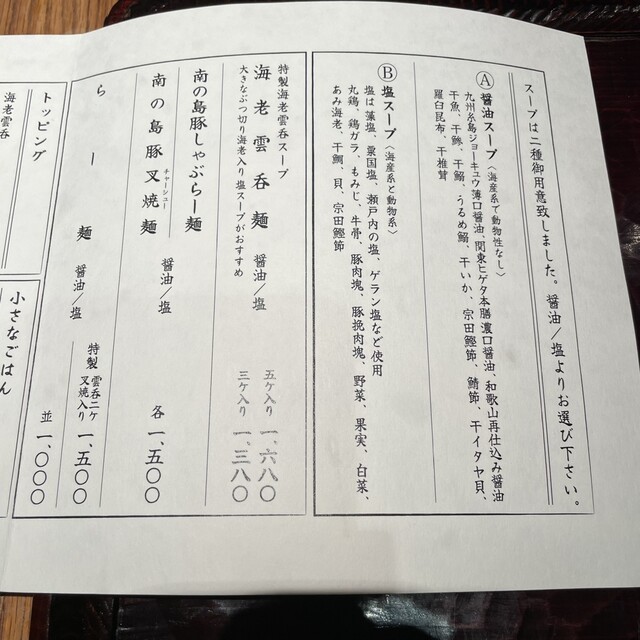 スープは二種御用意致しました。醤油/塩よりお選び下さい。
Ⓐ 醤油スープ〈海産系で動物性なし〉
九州糸島ジョーキュウ薄口醤油、関東ヒゲタ本膳濃口醤油、和歌山再仕込み醤油
干魚、干鯵、干鰯、うるめ鰯、干いか、宗田鰹節、鯖節、干イタヤ貝、
羅臼昆布、干椎茸
Ⓑ 塩スープ〈海産系と動物系〉
塩は藻塩、粟国塩、瀬戸内の塩、ゲラン塩など使用
丸鶏、鶏ガラ、もみじ、牛骨、豚肉塊、豚挽肉塊、野菜、果実、白菜、
あみ海老、干鯛、貝、宗田鰹節
特製海老雲呑スープ
海老雲呑麺 醤油/塩 五ケ入り 一、六八〇
三ケ入り 一、三八〇
大きなぶつ切り海老入り塩スープがおすすめ
南の島豚しゃぶらー麺
南の島豚叉焼麺 醤油/塩 各 一、五〇〇
チャーシュー
らー麺 醤油/塩 特製 雲呑二ケ 叉焼入り 一、五〇〇
並 一、〇〇〇
トッピング
海老雲呑
小さなごはん